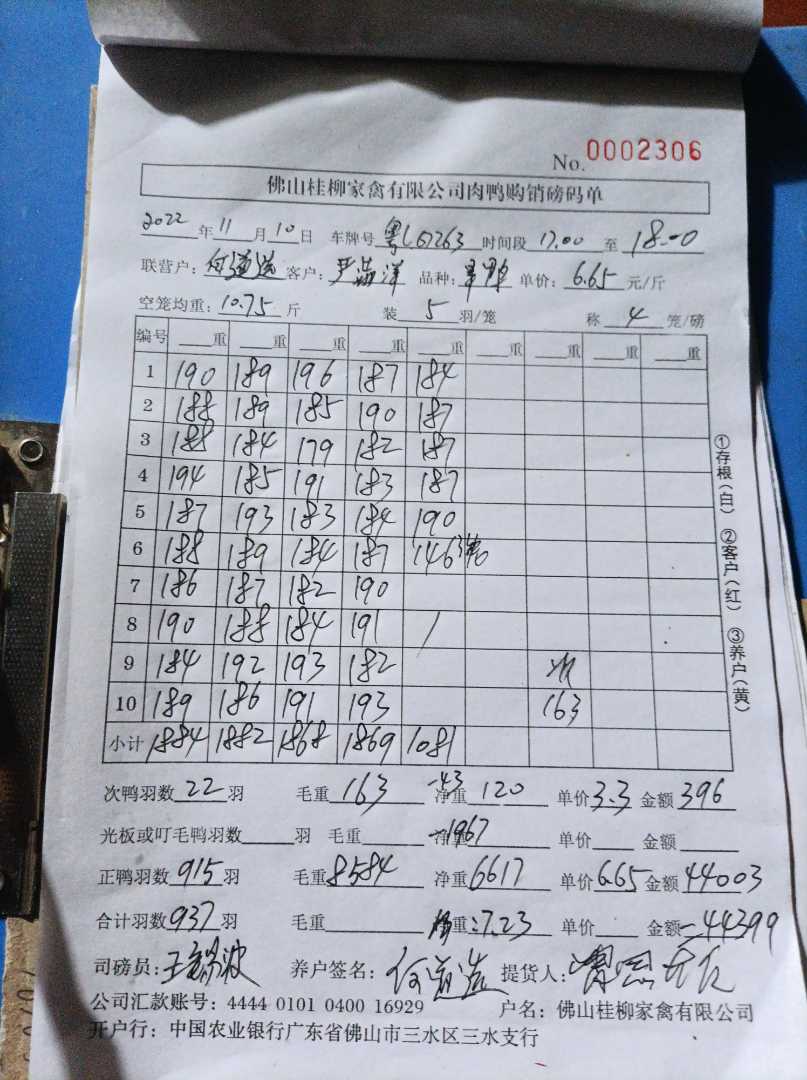 No. 0002306
佛山桂柳家禽有限公司肉鸭购销磅码单
2022年11月10日 车牌号 时间段17.00至18.00
联营户: 何道选 客户: 品种: 单价: 6.65元/斤
空笼均重: 10.75斤 装5羽/笼 称4笼/磅
编号 重 重 重 重 重 重 重 重 重
1 190 189 196 187 184
2 188 189 185 190 187
3 188 184 179 182 187
4 194 185 191 183 187
5 187 193 183 184 190
6 188 189 184 187 146
7 186 187 182 190
8 190 188 184 191 /
9 184 192 193 182
10 189 186 191 193 163
小计 1884 1882 1868 1869 1081
①存根(白) ②客户(红) ③养户(黄)
次鸭羽数22羽 毛重163 -43 净重120 单价3.3 金额396
光板或叮毛鸭羽数 羽 毛重 净重 -1967 单价 金额
正鸭羽数915羽 毛重8584 净重6617 单价6.65 金额44003
合计羽数937羽 毛重 重:7.23 单价 金额=44399
司磅员: 养户签名: 何道选 提货人:
公司汇款账号: 4444 0101 0400 16929 户名: 佛山桂柳家禽有限公司
开户行: 中国农业银行广东省佛山市三水区三水支行